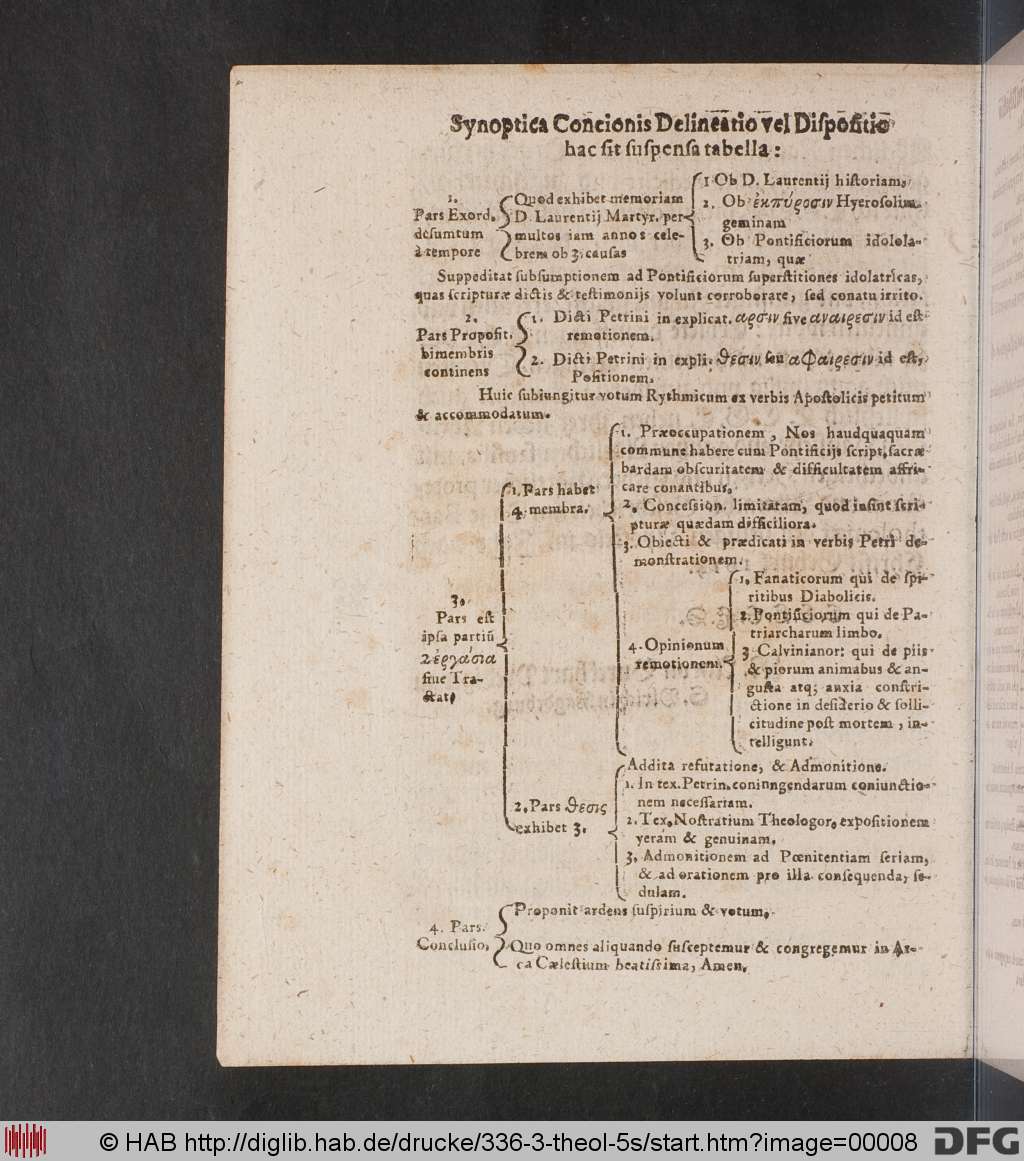 Synoptica Concionis Delineatio vel Dispositio
hac sit suspensa tabella:
1.
Pars Exord.
desumtum
à tempore
Quod exhibet memoriam
D. Laurentij Martyr. per
multos iam annos cele-
brem ob 3. causas
1 Ob D. Laurentij historiam.
2. Ob ἐκπύροσιν Hyerosolim.
geminam
3. Ob Pontificiorum idolola-
triam, quæ
Suppeditat subsumptionem ad Pontificiorum superstitiones idolatricas,
quas scripturæ dictis & testimonijs volunt corroborare, sed conatu irrito.
2.
Pars Proposit.
bimembris
continens
1. Dicti Petrini in explicat. αρσιν sive αναιρεσιν id est
remotionem.
2. Dicti Petrini in expli. θεσιν seu αφαιρεσιν id est,
Positionem.
Huic subiungitur votum Rythmicum ex verbis Apostolicis petitum
& accommodatum.
3.
Pars est
ipsa partiũ
ἐργάσια
sive Tra-
ctat9
1. Pars habet
4. membra.
1. Præoccupationem, Nos haudquaquam
commune habere cum Pontificijs script. sacræ
bardam obscuritatem & difficultatem affri-
care conantibus.
2. Concession. limitatam, quod insint scri-
pturæ quædam difficiliora.
3. Obiecti & prædicati in verbis Petri de-
monstrationem.
4. Opinionum
remotionem.
1. Fanaticorum qui de spi-
ritibus Diabolicis.
2. Pontificiorum qui de Pa-
triarcharum limbo.
3 Calvinianor: qui de piis
& piorum animabus & an-
gusta atq; anxia constri-
ctione in desiderio & solli-
citudine post mortem, in-
telligunt.
2. Pars θεσις
exhibet 3.
Addita refutatione, & Admonitione.
1. In tex. Petrin. coniungendarum coniunctio-
nem necessariam.
2. Tex. Nostratium Theologor. expositionem
veram & genuinam.
3. Admonitionem ad Pœnitentiam seriam,
& ad orationem pro illa consequenda, se-
dulam.
4. Pars.
Conclusio.
Proponit ardens suspirium & votum,
Quo omnes aliquando susceptemur & congregemur in Ar-
ca Cælestium beatissima, Amen.
© HAB http://diglib.hab.de/drucke/336-3-theol-5s/start.htm?image=00008
DFG